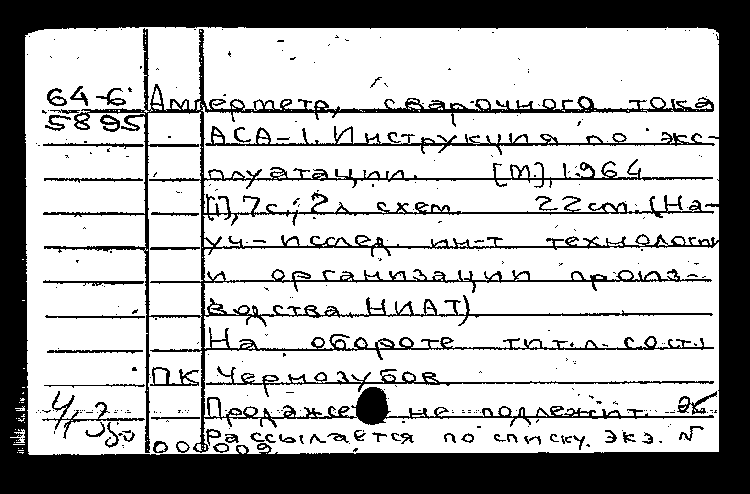 64-6 Амперметр, сварочного тока
5895 АСА-1. Инструкция по экс-
плуатации. [М], 1964
[1], 7с.; 2л. схем. 22см. (На-
уч-исслед. ин-т технологи
и организации произ-
водства НИАТ)
На обороте тит.л. сост.:
ПК Чермозубов
Продаже не подлежит.
Рассылается по списку. Экз. N
000009